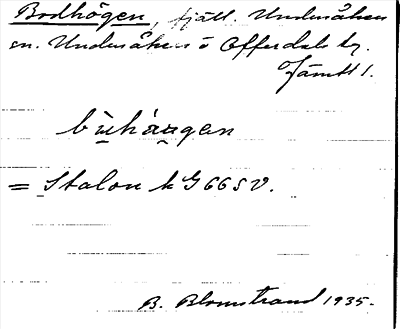 Bodhögen, fjäll. Undersåkers
sn. Undersåkers o Offerdals tg.
Jämtl.
bùhå̀ugen
= Stalon k G 66 SV.
B. Blomstrand 1935.